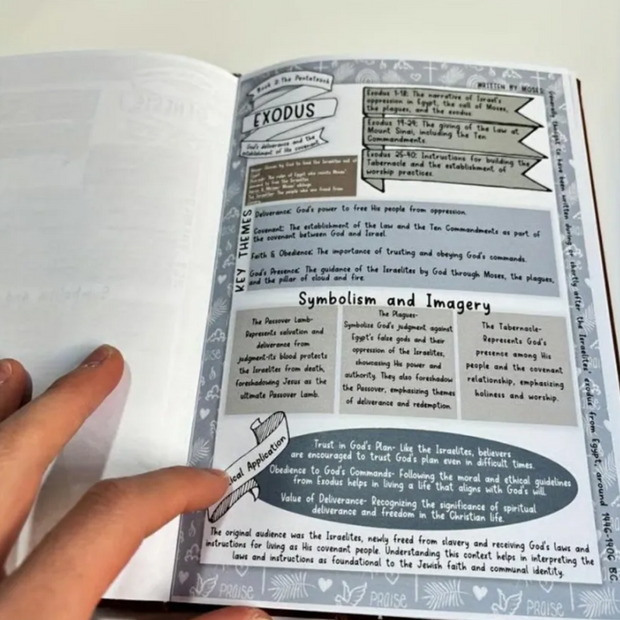 Book 2: The Pentateuch
EXODUS
God's deliverance and the
establishment of his covenant.
WRITTEN BY MOSES
Exodus 1-18: The narrative of Israel's
oppression in Egypt, the call of Moses,
the plagues, and the exodus.
Exodus 19-24: The giving of the Law at
Mount Sinai, including the Ten
Commandments.
Exodus 25-40: Instructions for building the
Tabernacle and the establishment of
worship practices.
Moses: Chosen by God to lead the Israelites out of
Egypt.
Pharaoh: The ruler of Egypt who resists Moses'
demand to free the Israelites
Aaron & Miriam: Moses' siblings.
The Israelites: The people who are freed from
KEY THEMES
Deliverance: God's power to free His people from oppression.
Covenant: The establishment of the Law and the Ten Commandments as part of
the covenant between God and Israel.
Faith & Obedience: The importance of trusting and obeying God's commands.
God's Presence: The guidance of the Israelites by God through Moses, the plagues,
and the pillar of cloud and fire.
Symbolism and Imagery
The Passover Lamb-
Represents salvation and
deliverance from
judgment-its blood protects
the Israelites from death,
foreshadowing Jesus as the
ultimate Passover Lamb.
The Plagues-
Symbolize God's judgment against
Egypt's false gods and their
oppression of the Israelites,
showcasing His power and
authority. They also foreshadow
the Passover, emphasizing themes
of deliverance and redemption.
The Tabernacle-
Represents God's
presence among His
people and the covenant
relationship, emphasizing
holiness and worship.
ical Application
Trust in God's Plan- Like the Israelites, believers
are encouraged to trust God's plan even in difficult times.
Obedience to God's Commands- Following the moral and ethical guidelines
from Exodus helps in living a life that aligns with God's will.
Value of Deliverance- Recognizing the significance of spiritual
deliverance and freedom in the Christian life.
The original audience was the Israelites, newly freed from slavery and receiving God's laws and
instructions for living as His covenant people. Understanding this context helps in interpreting the
laws and instructions as foundational to the Jewish faith and communal identity.
Generally thought to have been written during or shortly after the Israelites' exodus from Egypt, around 1446-1406 BC
PRAISE
PRAISE
PRAISE